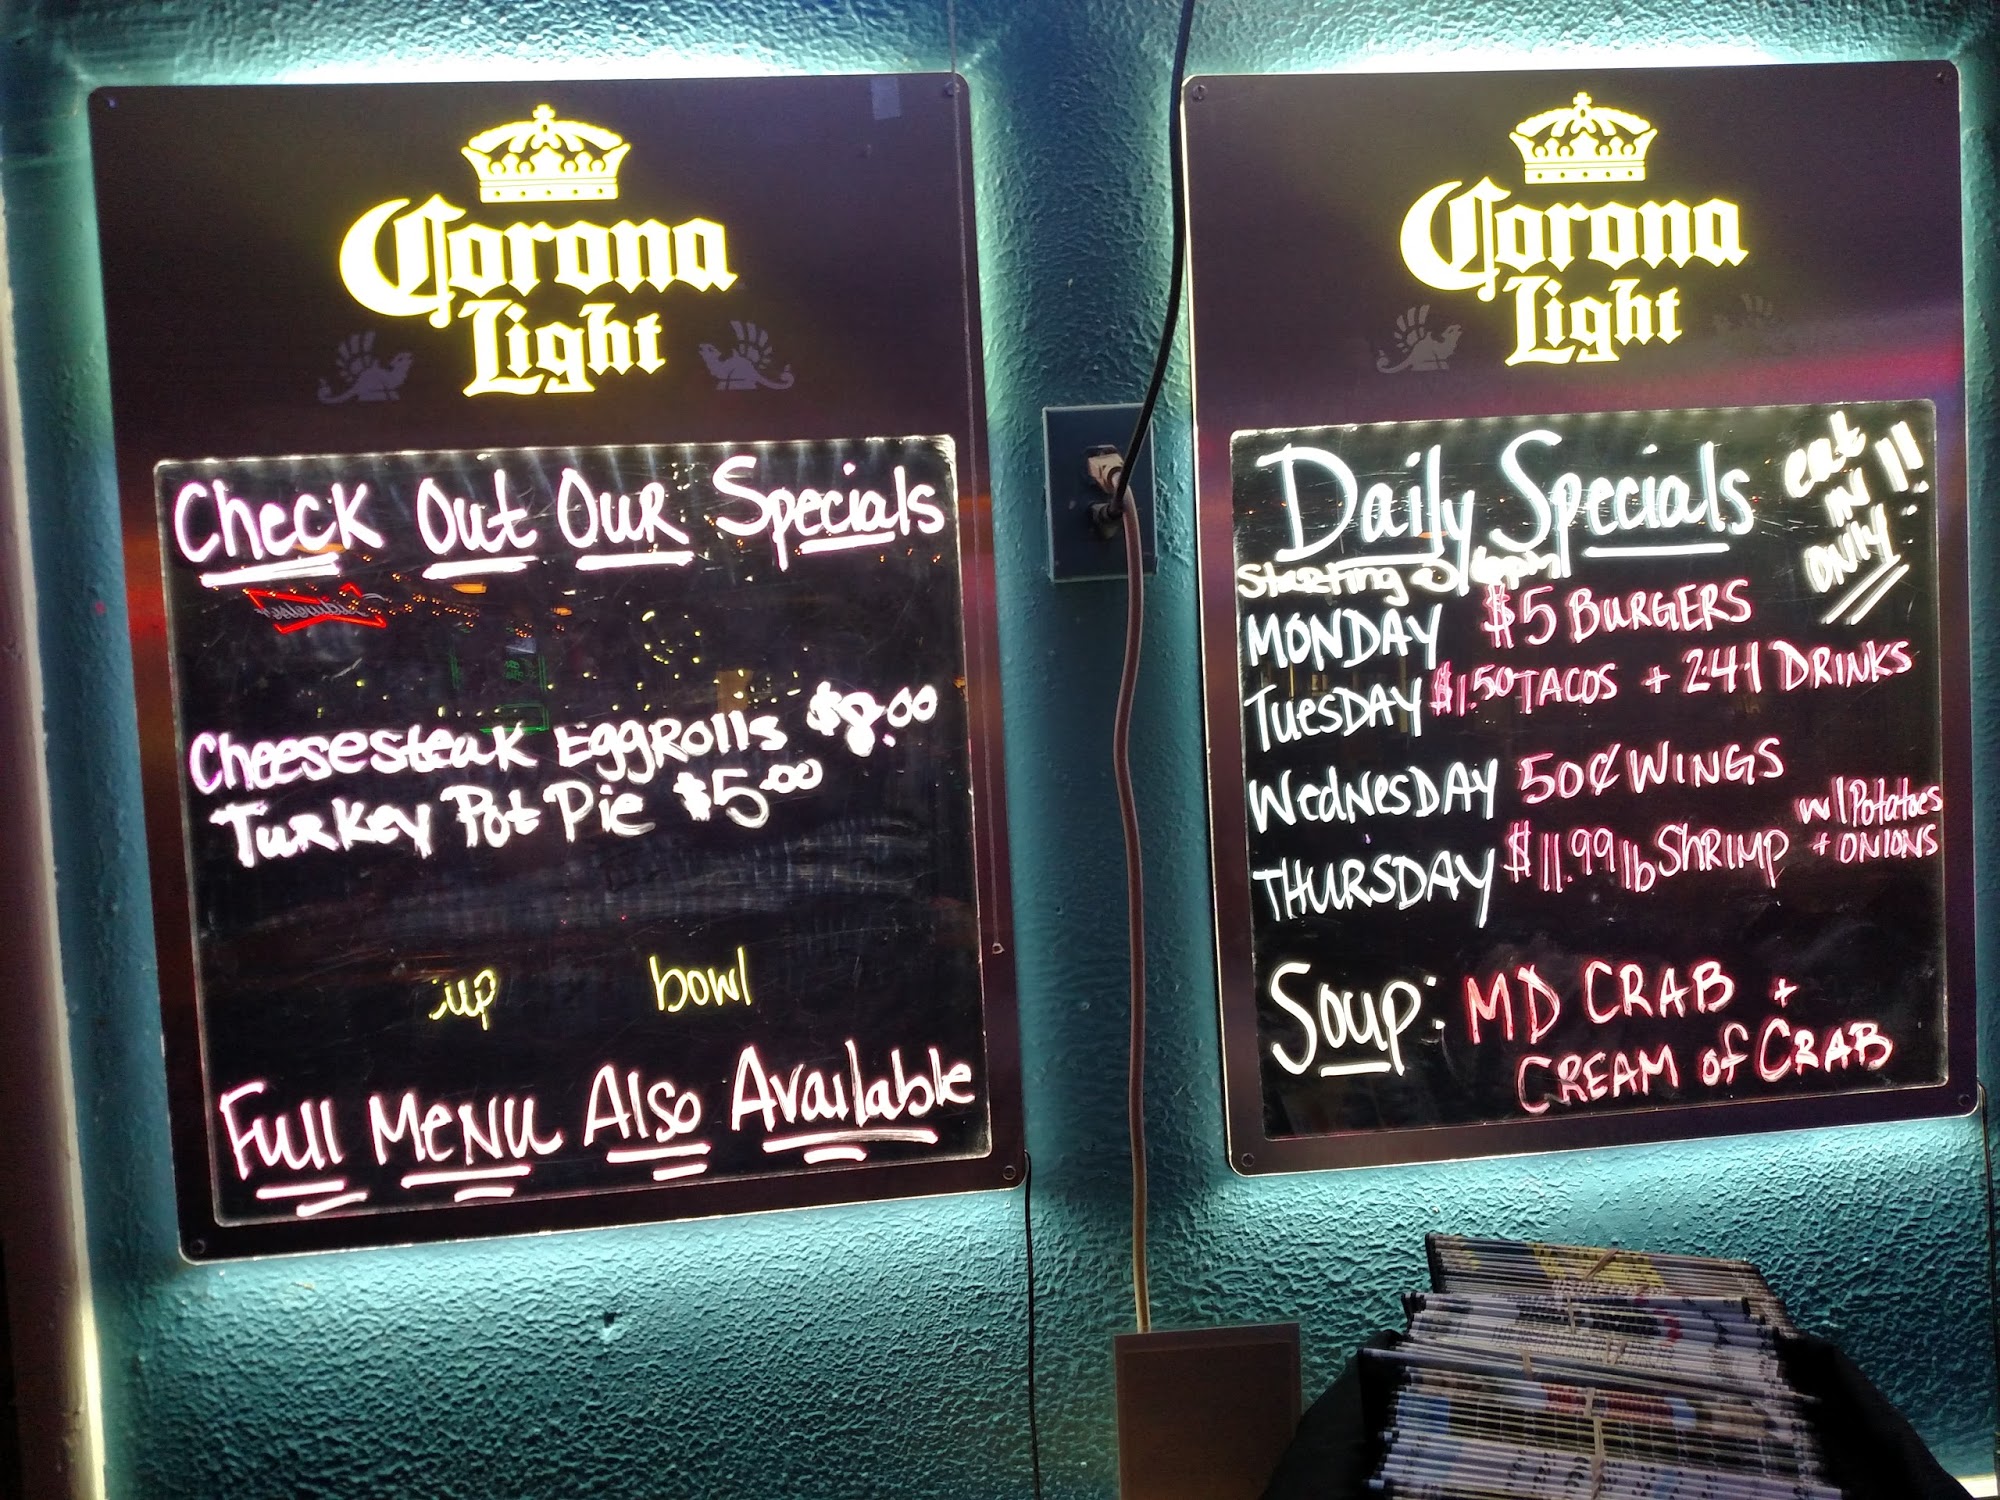 Corona
Light
Check Out Our Specials
Cheesesteak Eggrolls $8.00
Turkey Pot Pie $5.00
up bowl
Full Menu Also Available
Corona
Light
Daily Specials
eat
IN
ONLY!!
Starting @ 6pm
MONDAY $5 BURGERS
TuesDAY $1.50 TACOS + 241 DRINKS
WedNesDAY 50¢ WINGS
THURSDAY $11.99 lb SHRIMP w/Potatoes
+ ONIONS
Soup: MD CRAB +
CREAM of CRAB